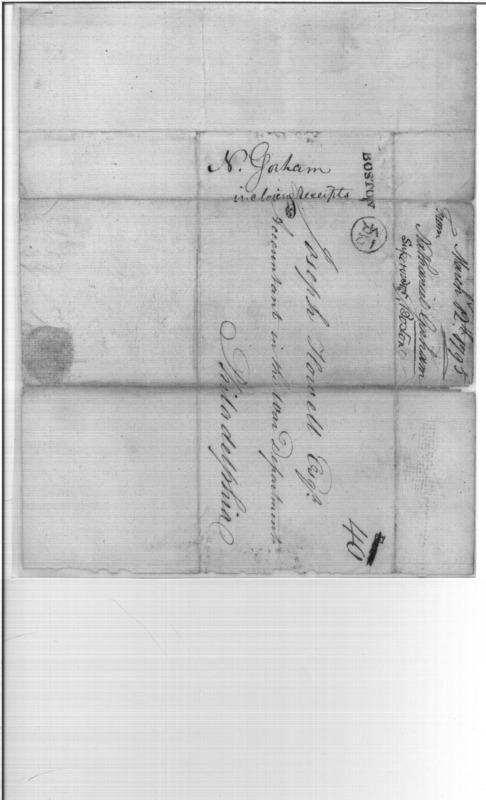 N. Gorham
inclosing Receipts
BOSTON
Joseph Howell Esqr.
Accountant in the War Department
Philadelphia
40
March 12th 1795
From
Nathaniel Gorham
Supervisor, Boston